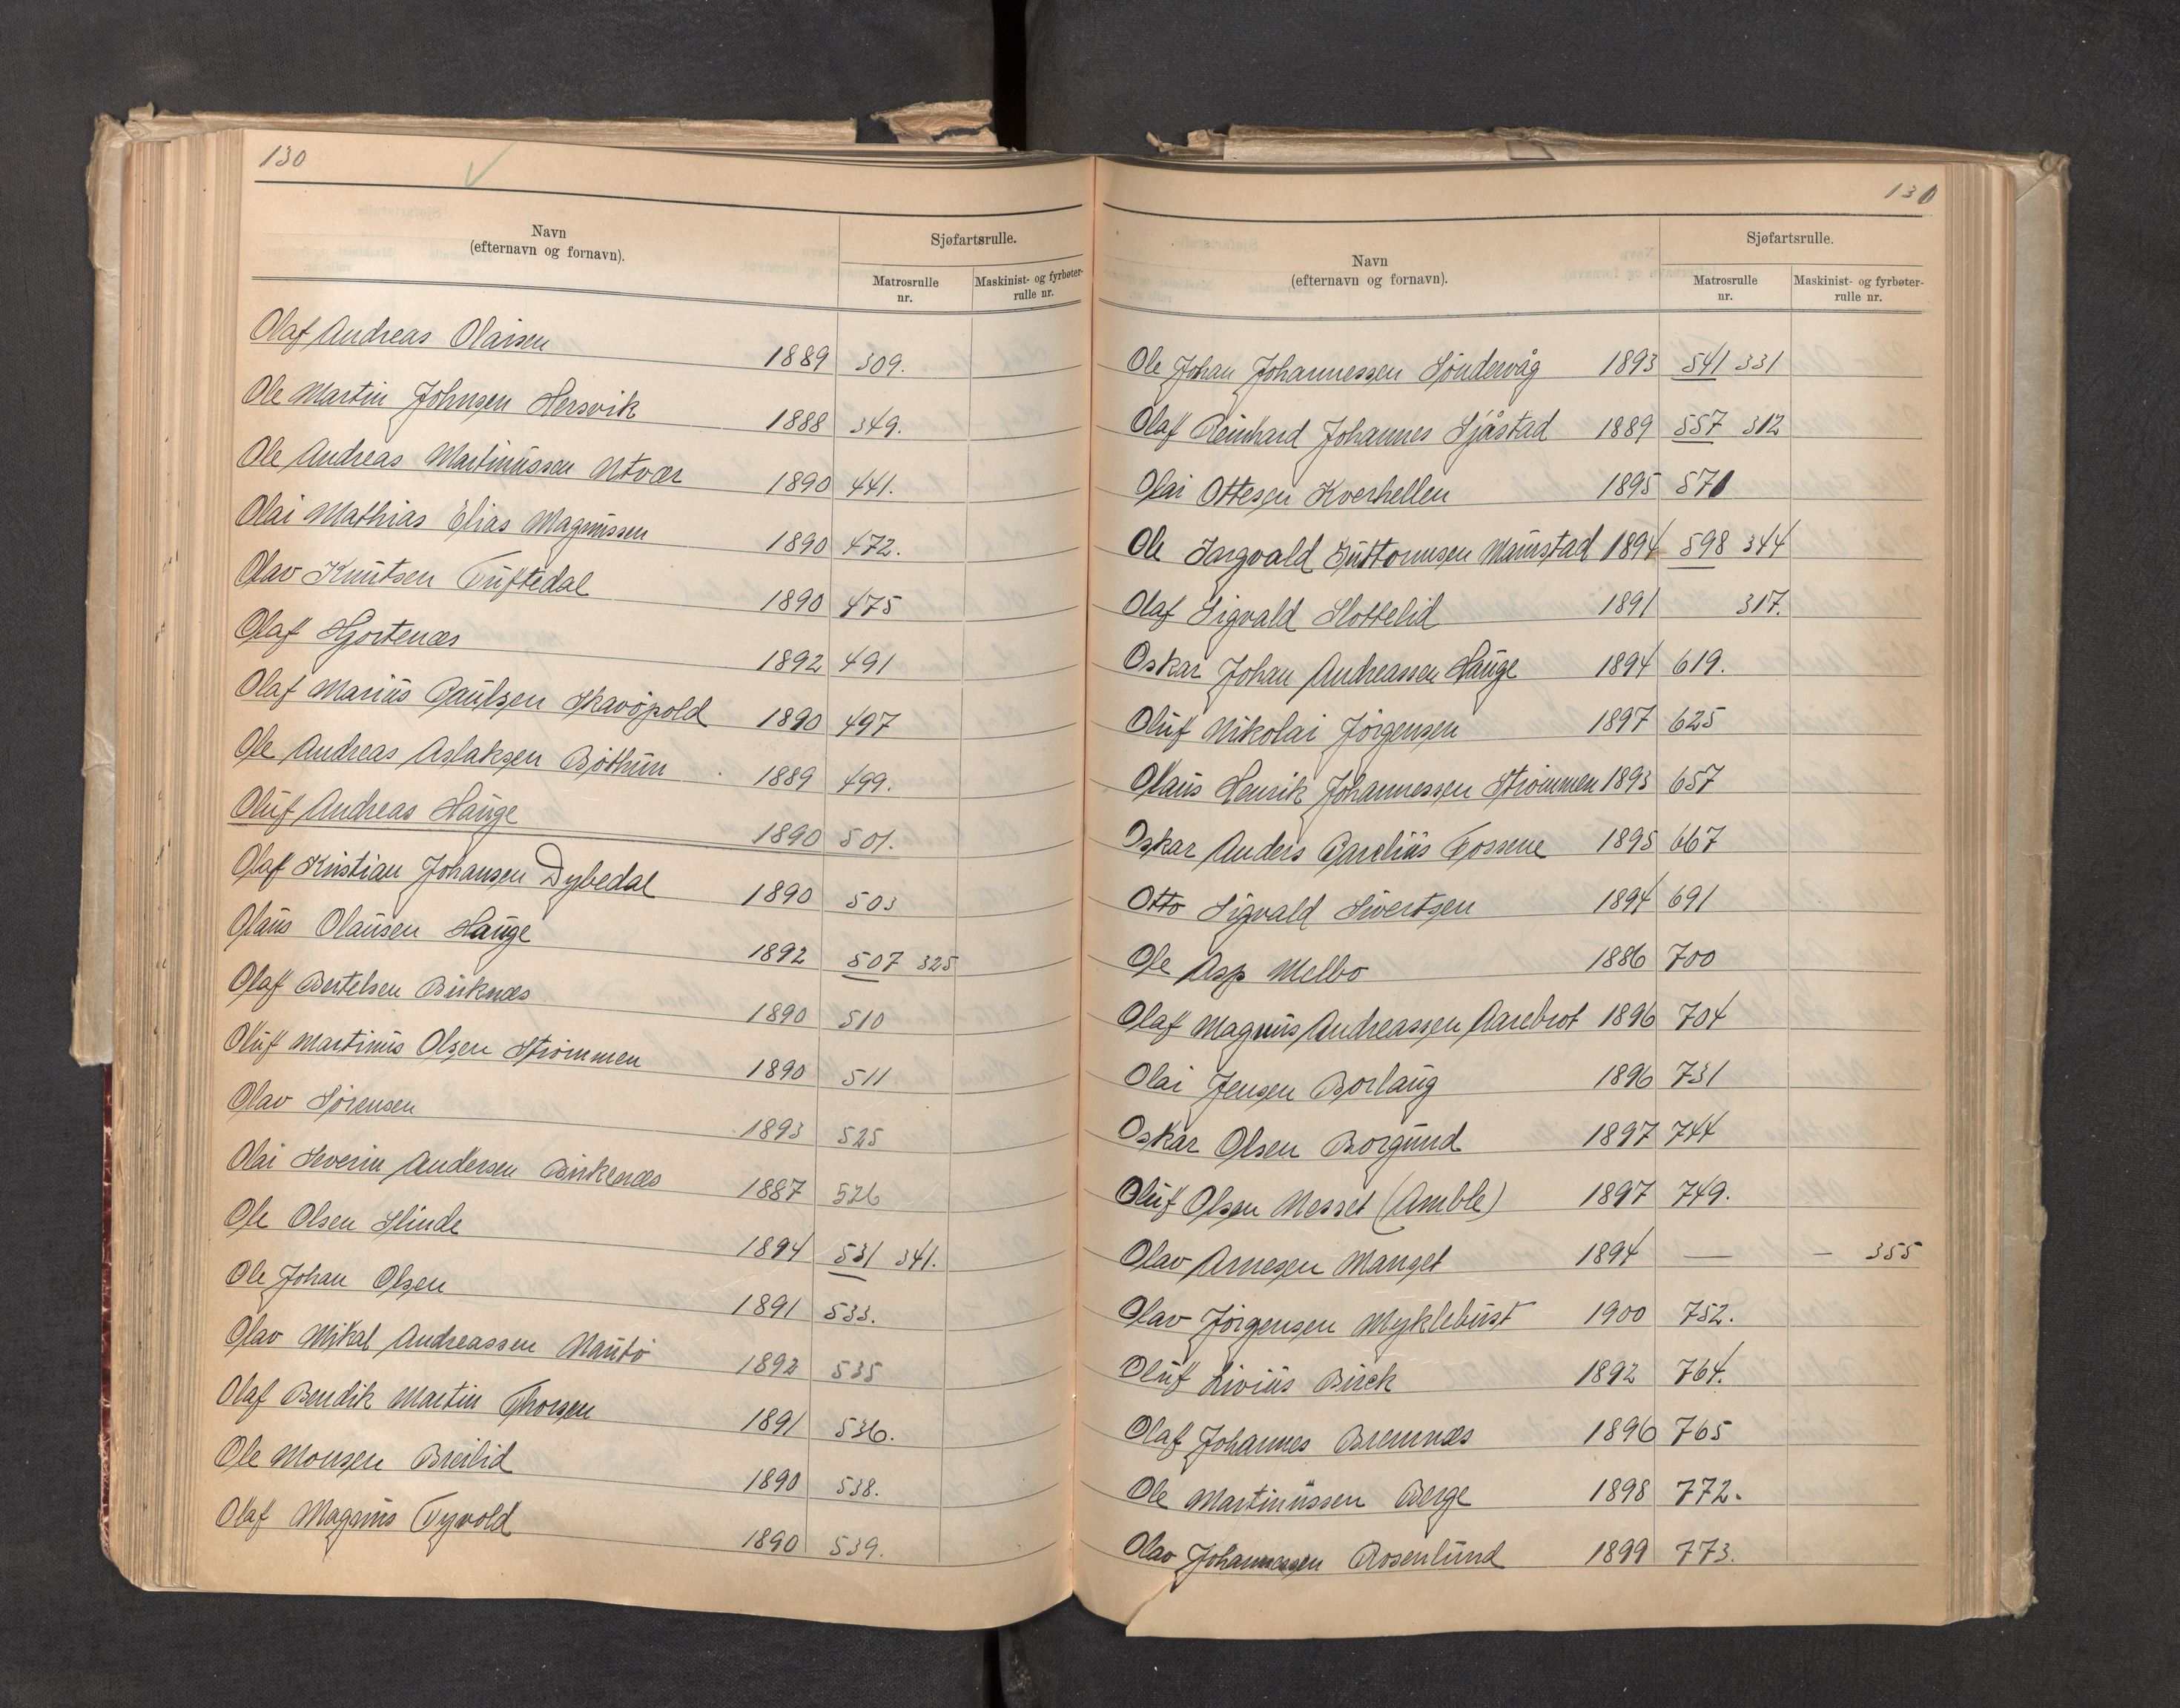 130
Navn
(efternavn og fornavn).
Sjøfartsrulle.
Matrosrulle
nr.
Maskinist- og fyrbøter-
rulle nr.
Olaf Andreas Olaisen 1889 309.
Ole Martin Johnsen Hersvik 1888 349.
Ole Andreas Martinussen Utvær 1890 441.
Olai Mathias Elias Magnussen 1890 472.
Olav Knutsen Tuftedal 1890 475
Olaf Hjortenæs 1892 491
Olaf Marius Paulsen 1890 497
Ole Andreas Aslaksen Bøthun 1889 499.
Oluf Andreas Hauge 1890 501.
Olaf Kristian Johansen Dybedal 1890 503
Olaus Olausen Hauge 1892 507 325
Olaf Bertelsen Birknæs 1890 510
Oluf Martinus Olsen Strømmen 1890 511
Olav Sørensen 1893 525
Olai Severin Andersen Birkenæs 1887 526
Ole Olsen Slinde 1894 531 341.
Ole Johan Olsen 1891 533.
Olav Mikal Andreassen 1892 535
Olaf Bendik Martin Thorsen 1891 536.
Ole Monsen Breilid 1890 538.
Olaf Magnus Tyvold 1890 539.
130
Navn
(efternavn og fornavn).
Sjøfartsrulle.
Matrosrulle
nr.
Maskinist- og fyrbøter-
rulle nr.
Ole Johan Johannessen Søndervåg 1893 541 331
Olaf Reinhard Johannes Sjåstad 1889 557 312
Olai Ottesen Kverhellen 1895 570
Ole Ingvald Guttormsen 1894 598 344
Olaf Sigvald Slottelid 1891 317.
Oskar Johan Andreassen Hauge 1894 619.
Oluf Nikolai Jørgensen 1897 625
Olaus Henrik Johannessen Strømmen 1893 657
Oskar Anders Parelius Fossene 1895 667
Otto Sigvald Sivertsen 1894 691
Ole Asp Melbo 1886 700
Olaf Magnus Andreassen Aarebrot 1896 704
Olai Jensen Borlaug 1896 731
Oskar Olsen Borgund 1897 744
Oluf Olsen Nesset (Amble) 1897 749.
Olav Arnesen Manget 1894 — — 355
Olav Jørgensen Myklebust 1900 752.
Oluf Livius Birck 1892 764.
Olaf Johannes Bremnæs 1896 765
Ole Martinussen Berge 1898 772.
Olav Johannessen Rosenlund 1899 773.